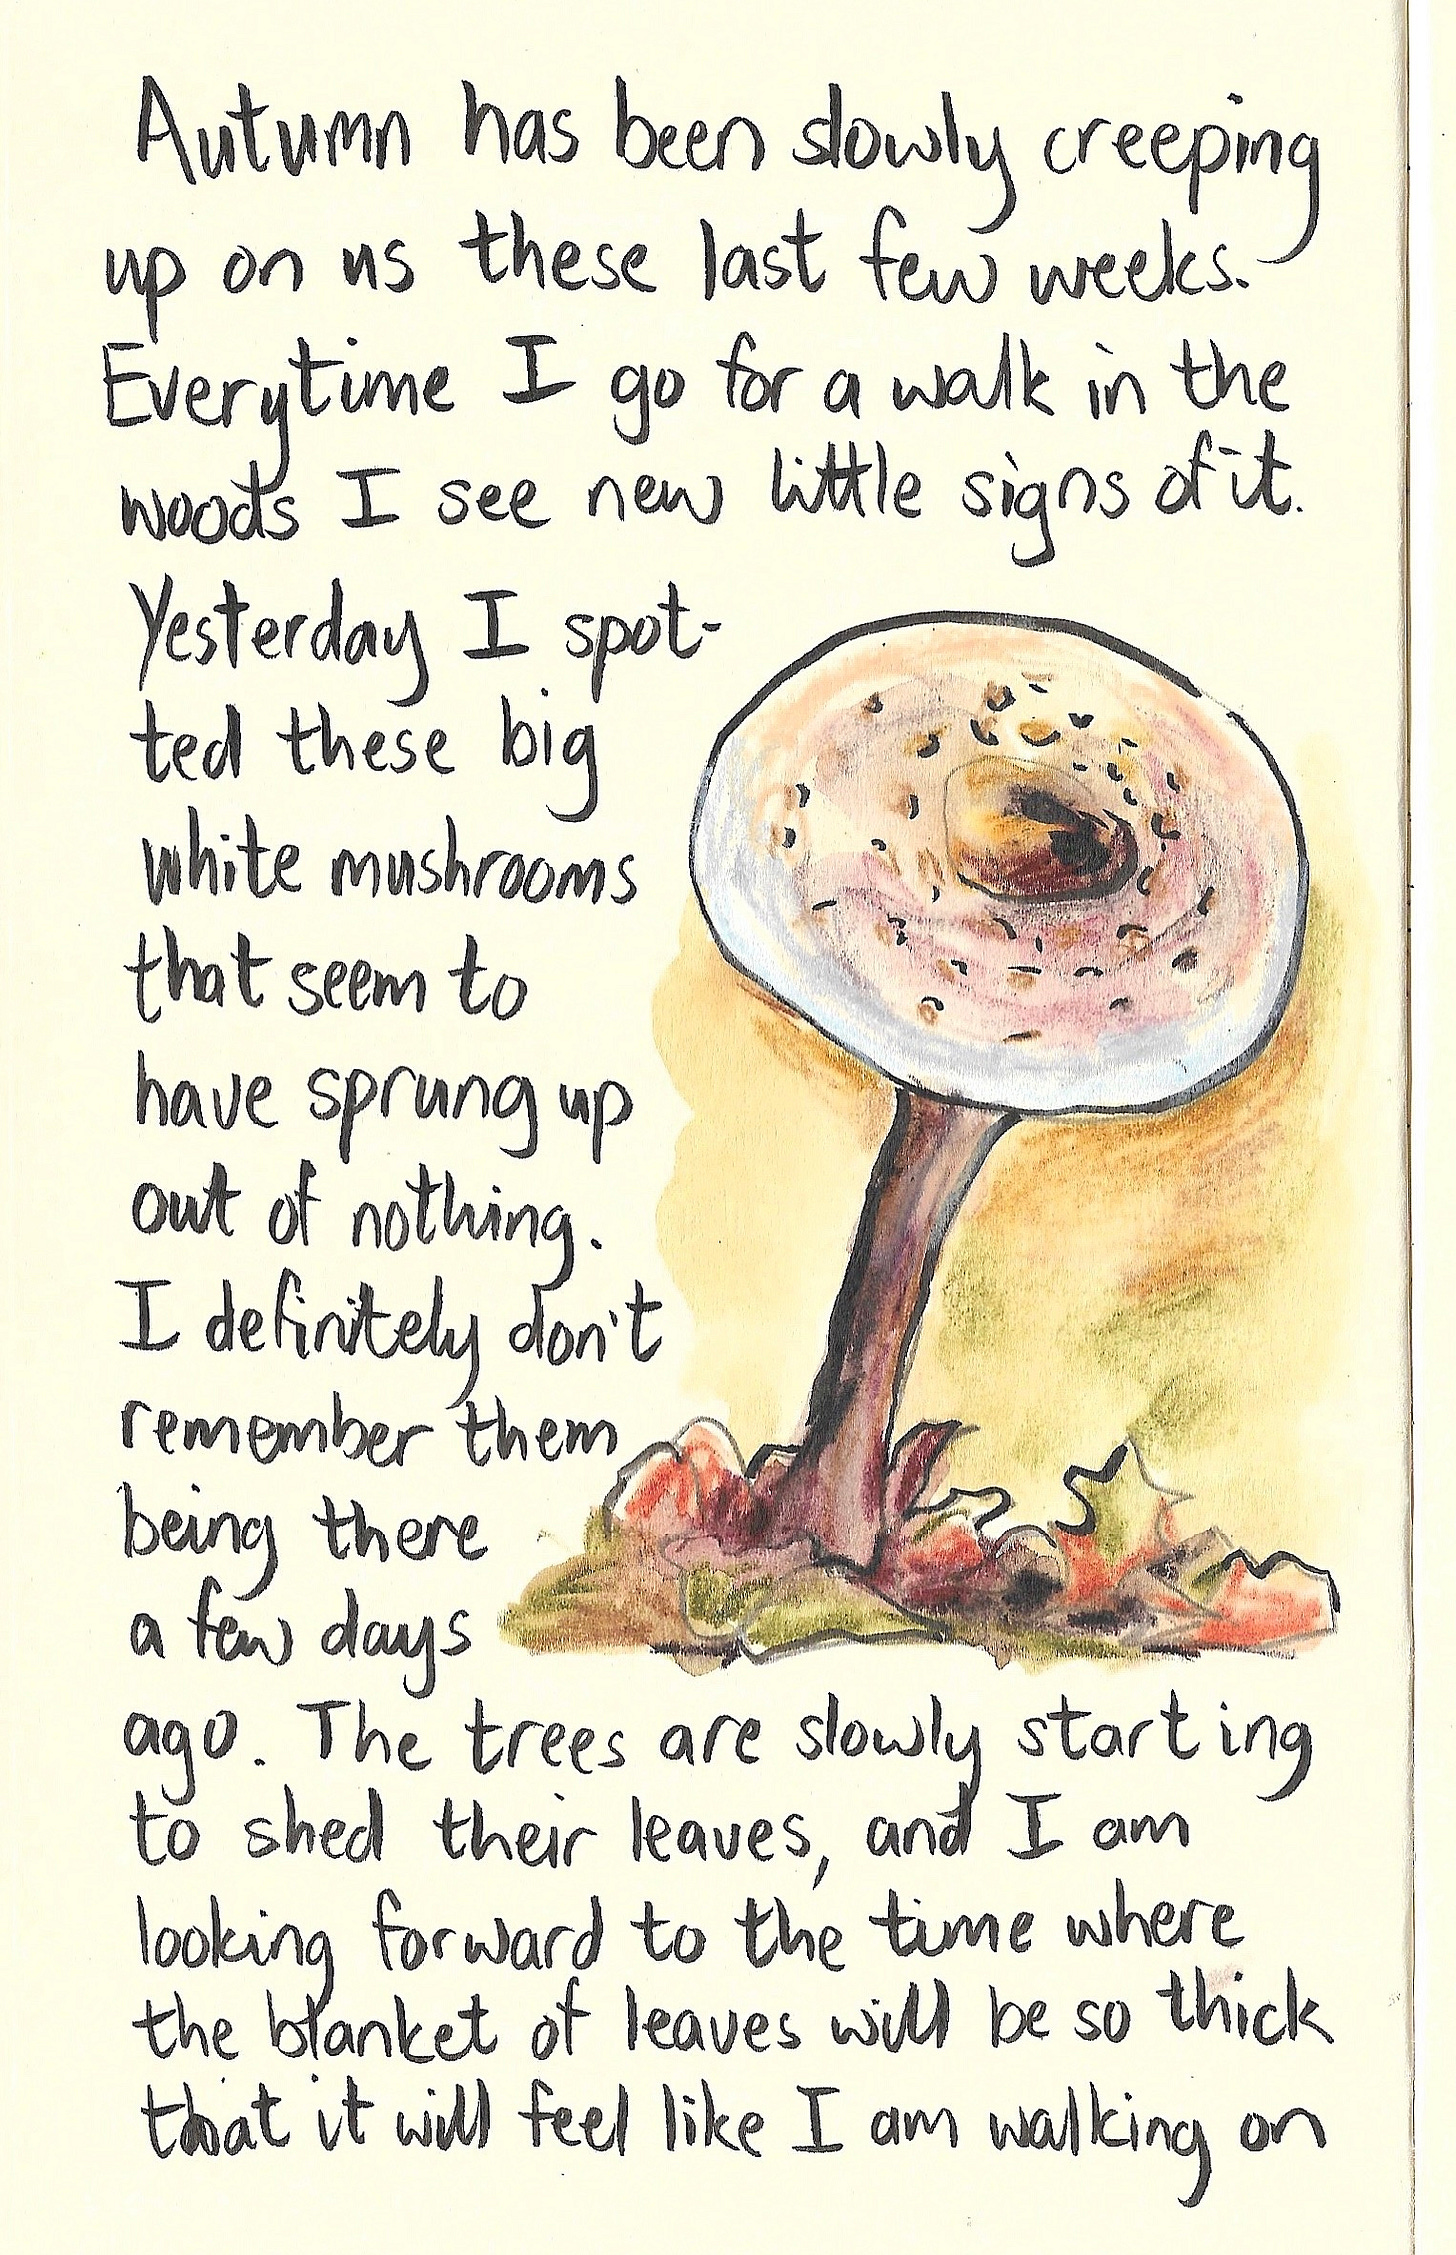 Autumn has been slowly creeping
up on us these last few weeks.
Everytime I go for a walk in the
woods I see new little signs of it.
Yesterday I spot-
ted these big
white mushrooms
that seem to
have sprung up
out of nothing.
I definitely don't
remember them
being there
a few days
ago. The trees are slowly starting
to shed their leaves, and I am
looking forward to the time where
the blanket of leaves will be so thick
that it will feel like I am walking on